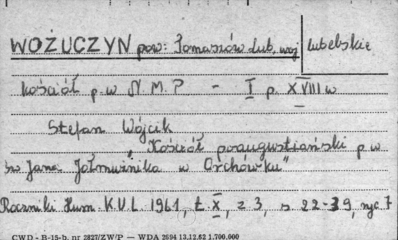 WOŻUCZYN pow. Tomaszów Lub. woj lubelskie
kościół p.w N.M.P - I p. XVIII w
Stefan Wójcik
"Kościół poaugustiański p.w
św Jana Jałmużnika w Orchówku"
Roczniki Hum. K.U.L 1961, t. X, z 3, s 22-39, ryc. 7
CWD - B-15-b. nr 2827/ZW/P — WDA 2694 13.12.82 1.700.000